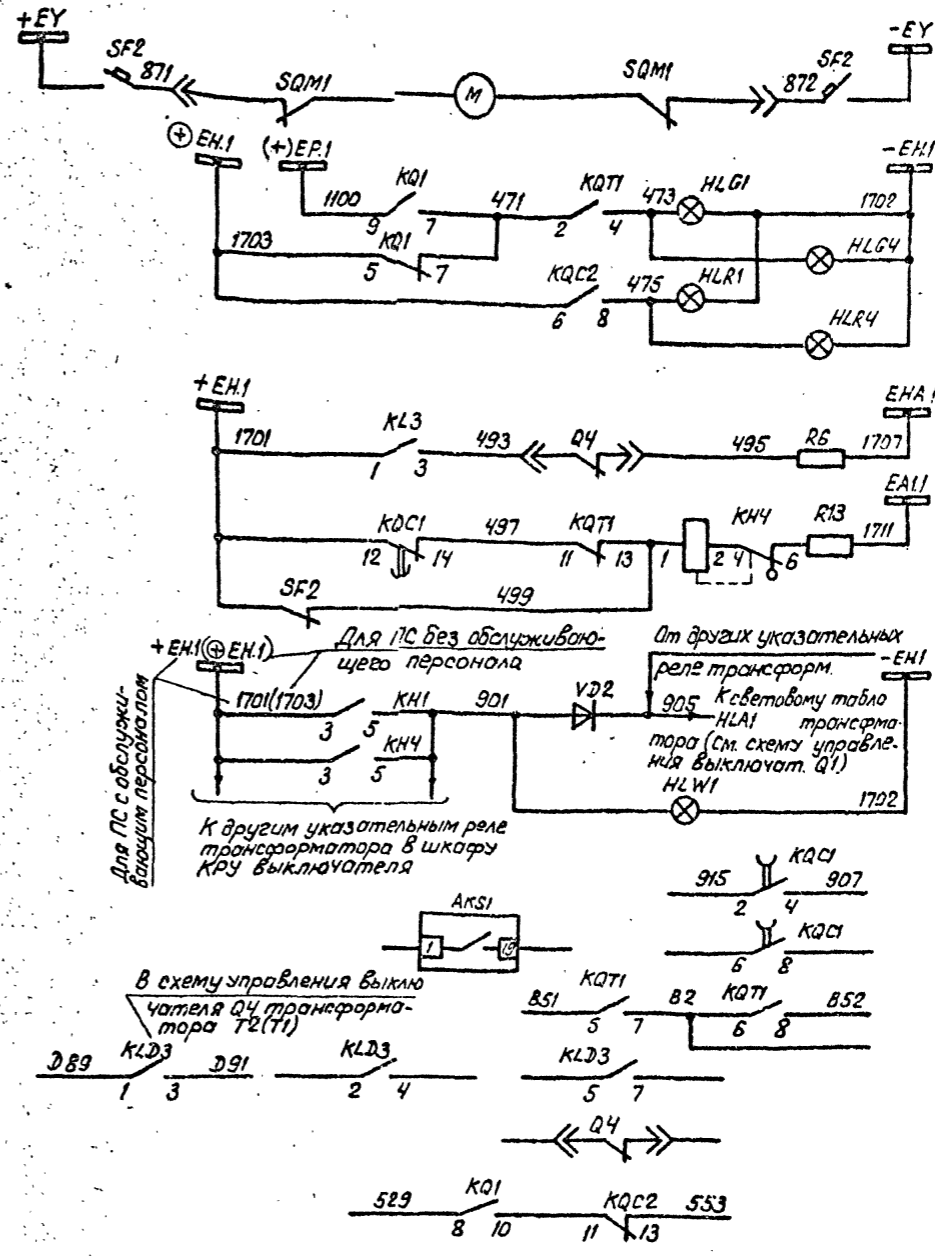 +EY
-EY
SF2
871
SQM1
M
SQM1
872
SF2
⊕ EH.1
(+)EP.1
-EH.1
1100
KQ1
9
7
471
KQT1
2
4
473
HLG1
1702
1703
KQ1
5
7
HLG4
KQC2
6
8
475
HLR1
HLR4
+EH.1
EHA.1
1701
KL3
1
3
493
Q4
495
R6
1707
EA1.1
KQC1
12
14
497
KQT1
11
13
1
2
KH4
4
6
R13
1711
SF2
499
+EH.1(⊕EH.1)
Для ПС без обслуживаю-
щего персонала
От других указательных
реле трансформ.
-EH1
Для ПС с обслужи-
вающим персоналом
1701(1703)
3
5
KH1
901
VD2
905
К световому табло
HLA1 трансфма-
тора (см. схему управле-
ния выключат. Q1)
3
5
KH4
HLW1
1702
К другим указательным реле
трансформатора в шкафу
КРУ выключателя
KQC1
915
2
4
907
AKS1
1
19
KQC1
6
8
В схему управления выклю
чателя Q4 трансформа-
тора Т2(Т1)
KQT1
851
5
7
82
KQT1
6
8
852
D89
KLD3
1
3
D91
KLD3
2
4
KLD3
5
7
Q4
529
KQ1
8
10
KQC2
11
13
553